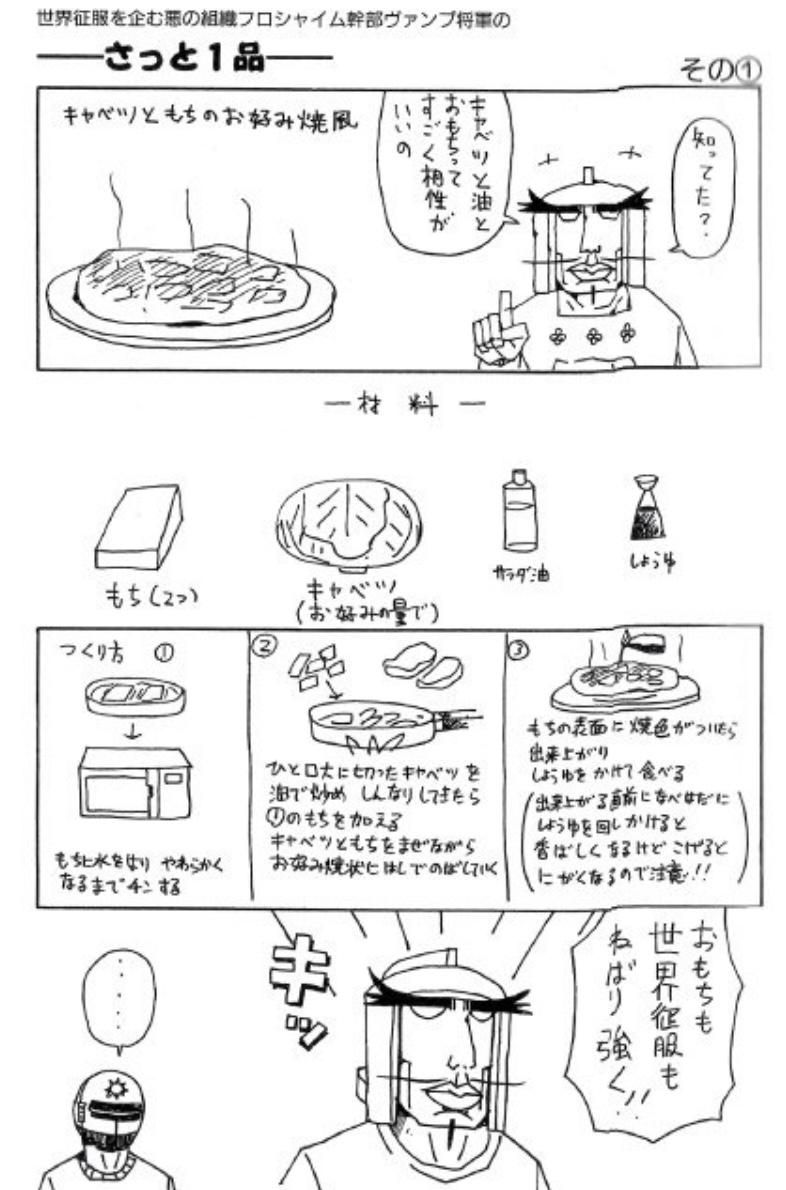 世界征服を企む悪の組織フロシャイム幹部ヴァンプ将軍の
さっと1品
その①
キャベツともちのお好み焼風
知ってた?
キャベツと油と
おもちって
すごく相性が
いいの
材料
もち(2つ)
キャベツ
(お好みの量で)
サラダ油
しょうゆ
つくり方 ①
もちに水をはり やわらかく
なるまでチンする
②
ひと口大に切ったキャベツを
油で炒め しんなりしてきたら
①のもちを加える
キャベツともちをまぜながら
お好み焼状にはしでのばしていく
③
もちの表面に焼色がついたら
出来上がり
しょうゆをかけて食べる
(出来上がる直前になべはだに
しょうゆを回しかけると
香ばしくなるけどこげると
にがくなるので注意!!)
おもちも
世界征服も
ねばり強く!!
キッ
....